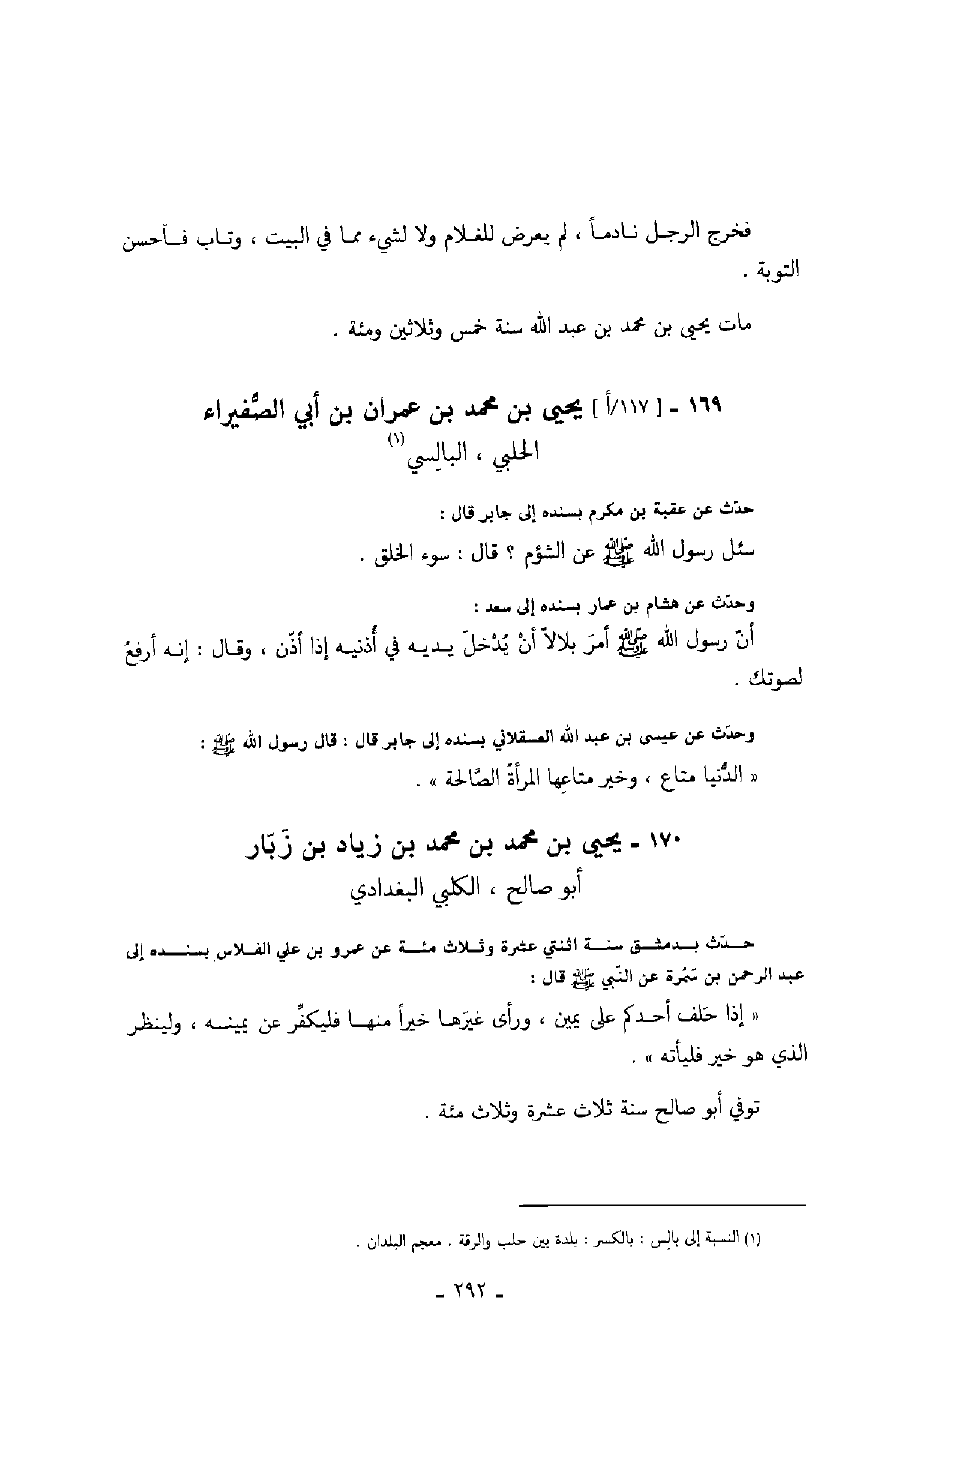 فخرج الرجل نادماً ، لم يعرض للغلام ولا لشيء مما في البيت ، وتاب فأحسن
التوبة .
مات يحيى بن محمد بن عبد الله سنة خمس وثلاثين ومئة .
١٦٩ ـ [ ١١٧/أ ] يحيى بن محمد بن عمران بن أبي الصُّفيراء
الحلبي ، البالِسي(١)
حدّث عن عقبة بن مكرم بسنده إلى جابر قال :
سئل رسول الله ﷺ عن الشؤم ؟ قال : سوء الخلق .
وحدّث عن هشام بن عمار بسنده إلى سعد :
أنّ رسول الله ﷺ أمرَ بلالاً أنْ يُدْخلَ يديه في أُذنيه إذا أذّن ، وقال : إنه أرفعُ
لصوتك .
وحدّث عن عيسى بن عبد الله العسقلاني بسنده إلى جابر قال : قال رسول الله ﷺ :
« الدُّنيا متاع ، وخير متاعِها المرأةُ الصَّالحة » .
١٧٠ ـ يحيى بن محمد بن محمد بن زياد بن زَبّار
أبو صالح ، الكلبي البغدادي
حدّث بدمشق سنة اثنتي عشرة وثلاث مئة عن عمرو بن علي الفلاس بسنده إلى
عبد الرحمن بن سَمُرة عن النّبي ﷺ قال :
« إذا حَلف أحدكم على يمين ، ورأى غيرَها خيراً منها فليكفِّر عن يمينه ، ولينظر
الذي هو خير فليأته » .
توفي أبو صالح سنة ثلاث عشرة وثلاث مئة .
(١) النسبة إلى بالِس : بالكسر : بلدة بين حلب والرقة . معجم البلدان .
ـ ٢٩٢ ـ